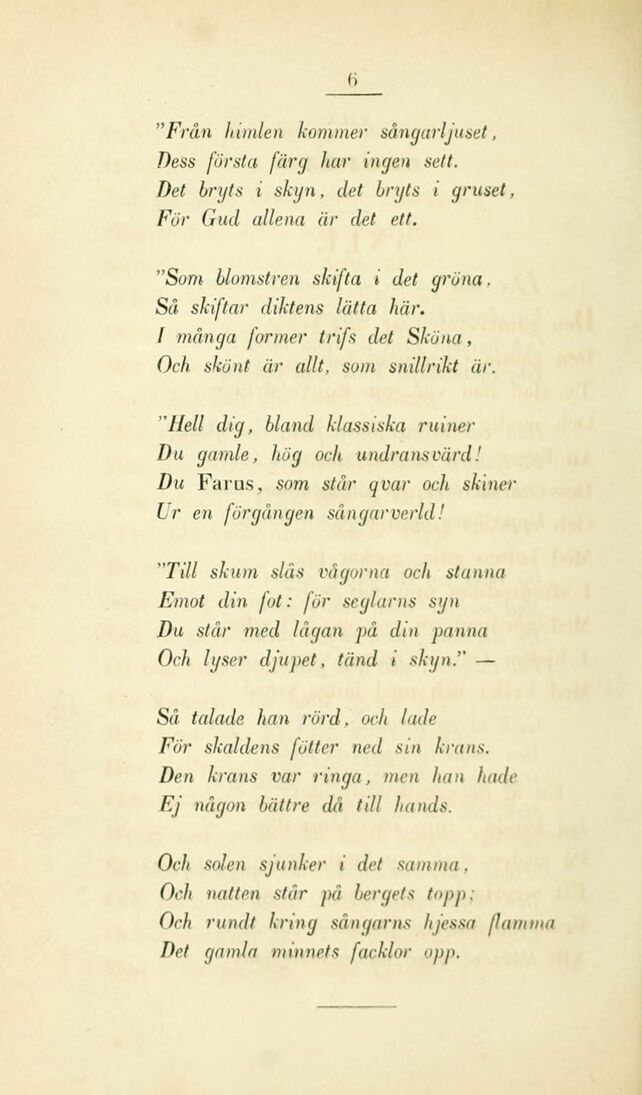 6
"Från himlen kommer sångarljuset,
Dess första färg har ingen sett.
Det bryts i skyn, det bryts i gruset,
För Gud allena är det ett.
"Som blomstren skifta i det gröna,
Så skiftar diktens lätta här.
I många former trifs det Sköna,
Och skönt är allt, som snillrikt är.
"Hell dig, bland klassiska ruiner
Du gamle, hög och undransvärd!
Du Farus, som står qvar och skiner
Ur en förgången sångarverld!
"Till skum slås vågorna och stanna
Emot din fot: för seglarns syn
Du står med lågan på din panna
Och lyser djupet, tänd i skyn." —
Så talade han rörd, och lade
För skaldens fötter ned sin krans.
Den krans var ringa, men han hade
Ej någon bättre då till hands.
Och solen sjunker i det samma,
Och natten står på bergets topp;
Och rundt kring sångarns hjessa flamma
Det gamla minnets facklor opp.